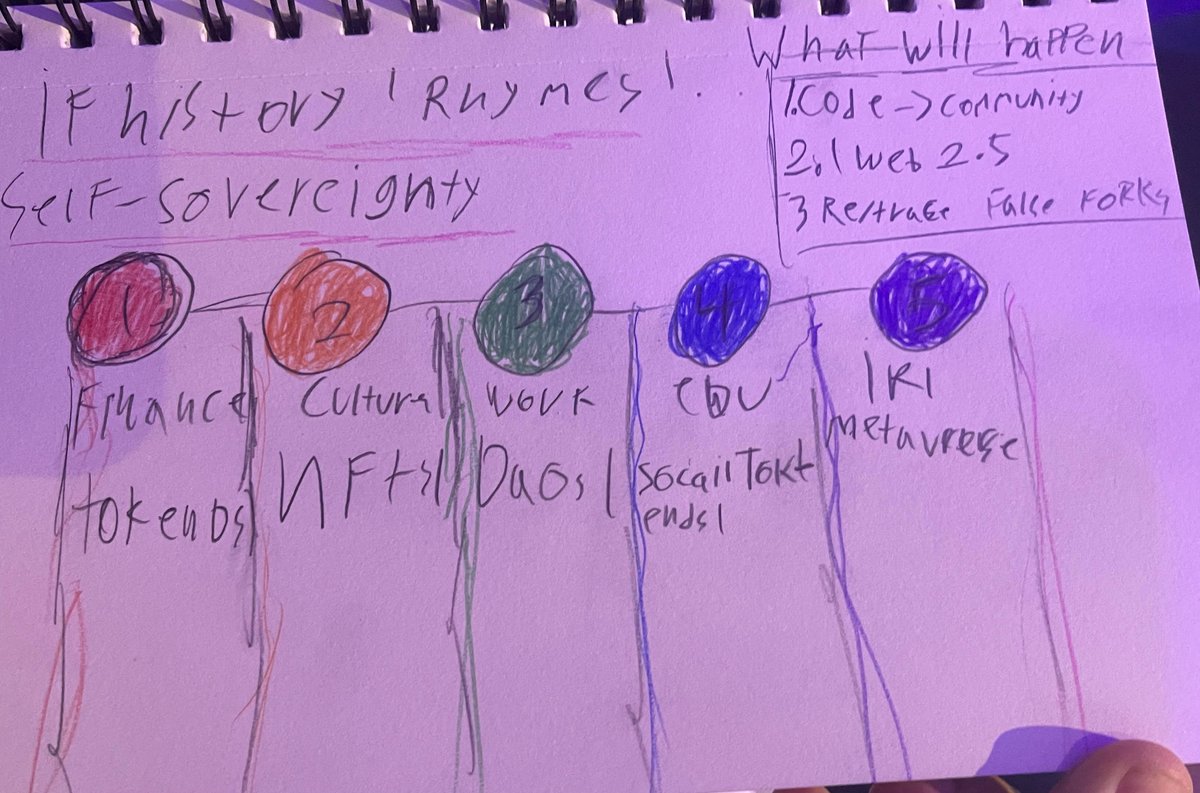 IF history 'Rhymes'...
Self-sovereignty
What will happen
1. Code -> community
2. Web 2.5
3 False FORKS
1 2 3 4 5
Finance
tokends
Cultural
NFts
Work
Daos
edu
socail Tokt
ends
IRl
metaverese